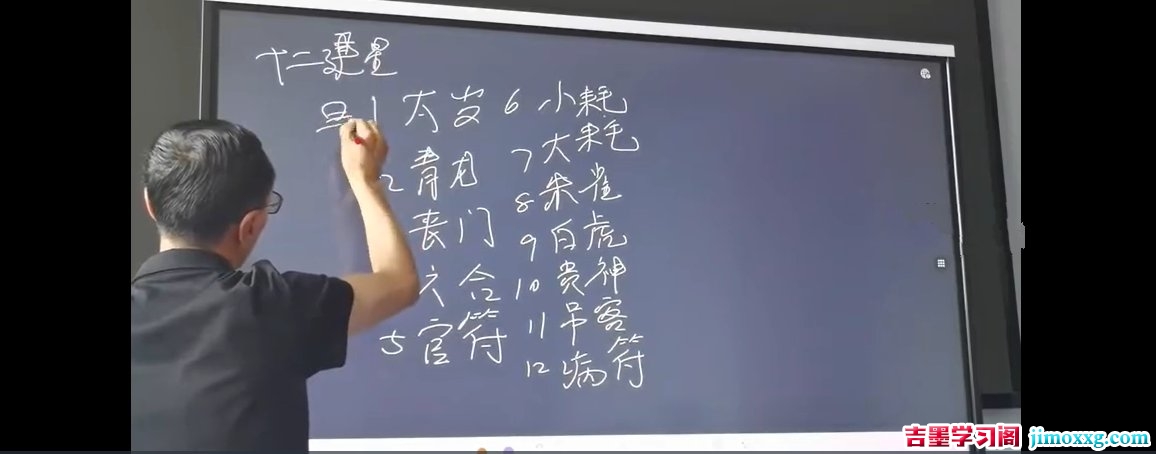 十二建星
1 太岁
2 青龙
丧门
六合
5 官符
6 小耗
7 大耗
8 朱雀
9 白虎
10 贵神
11 吊客
12 病符
吉墨学习阁 jimoxxg.com